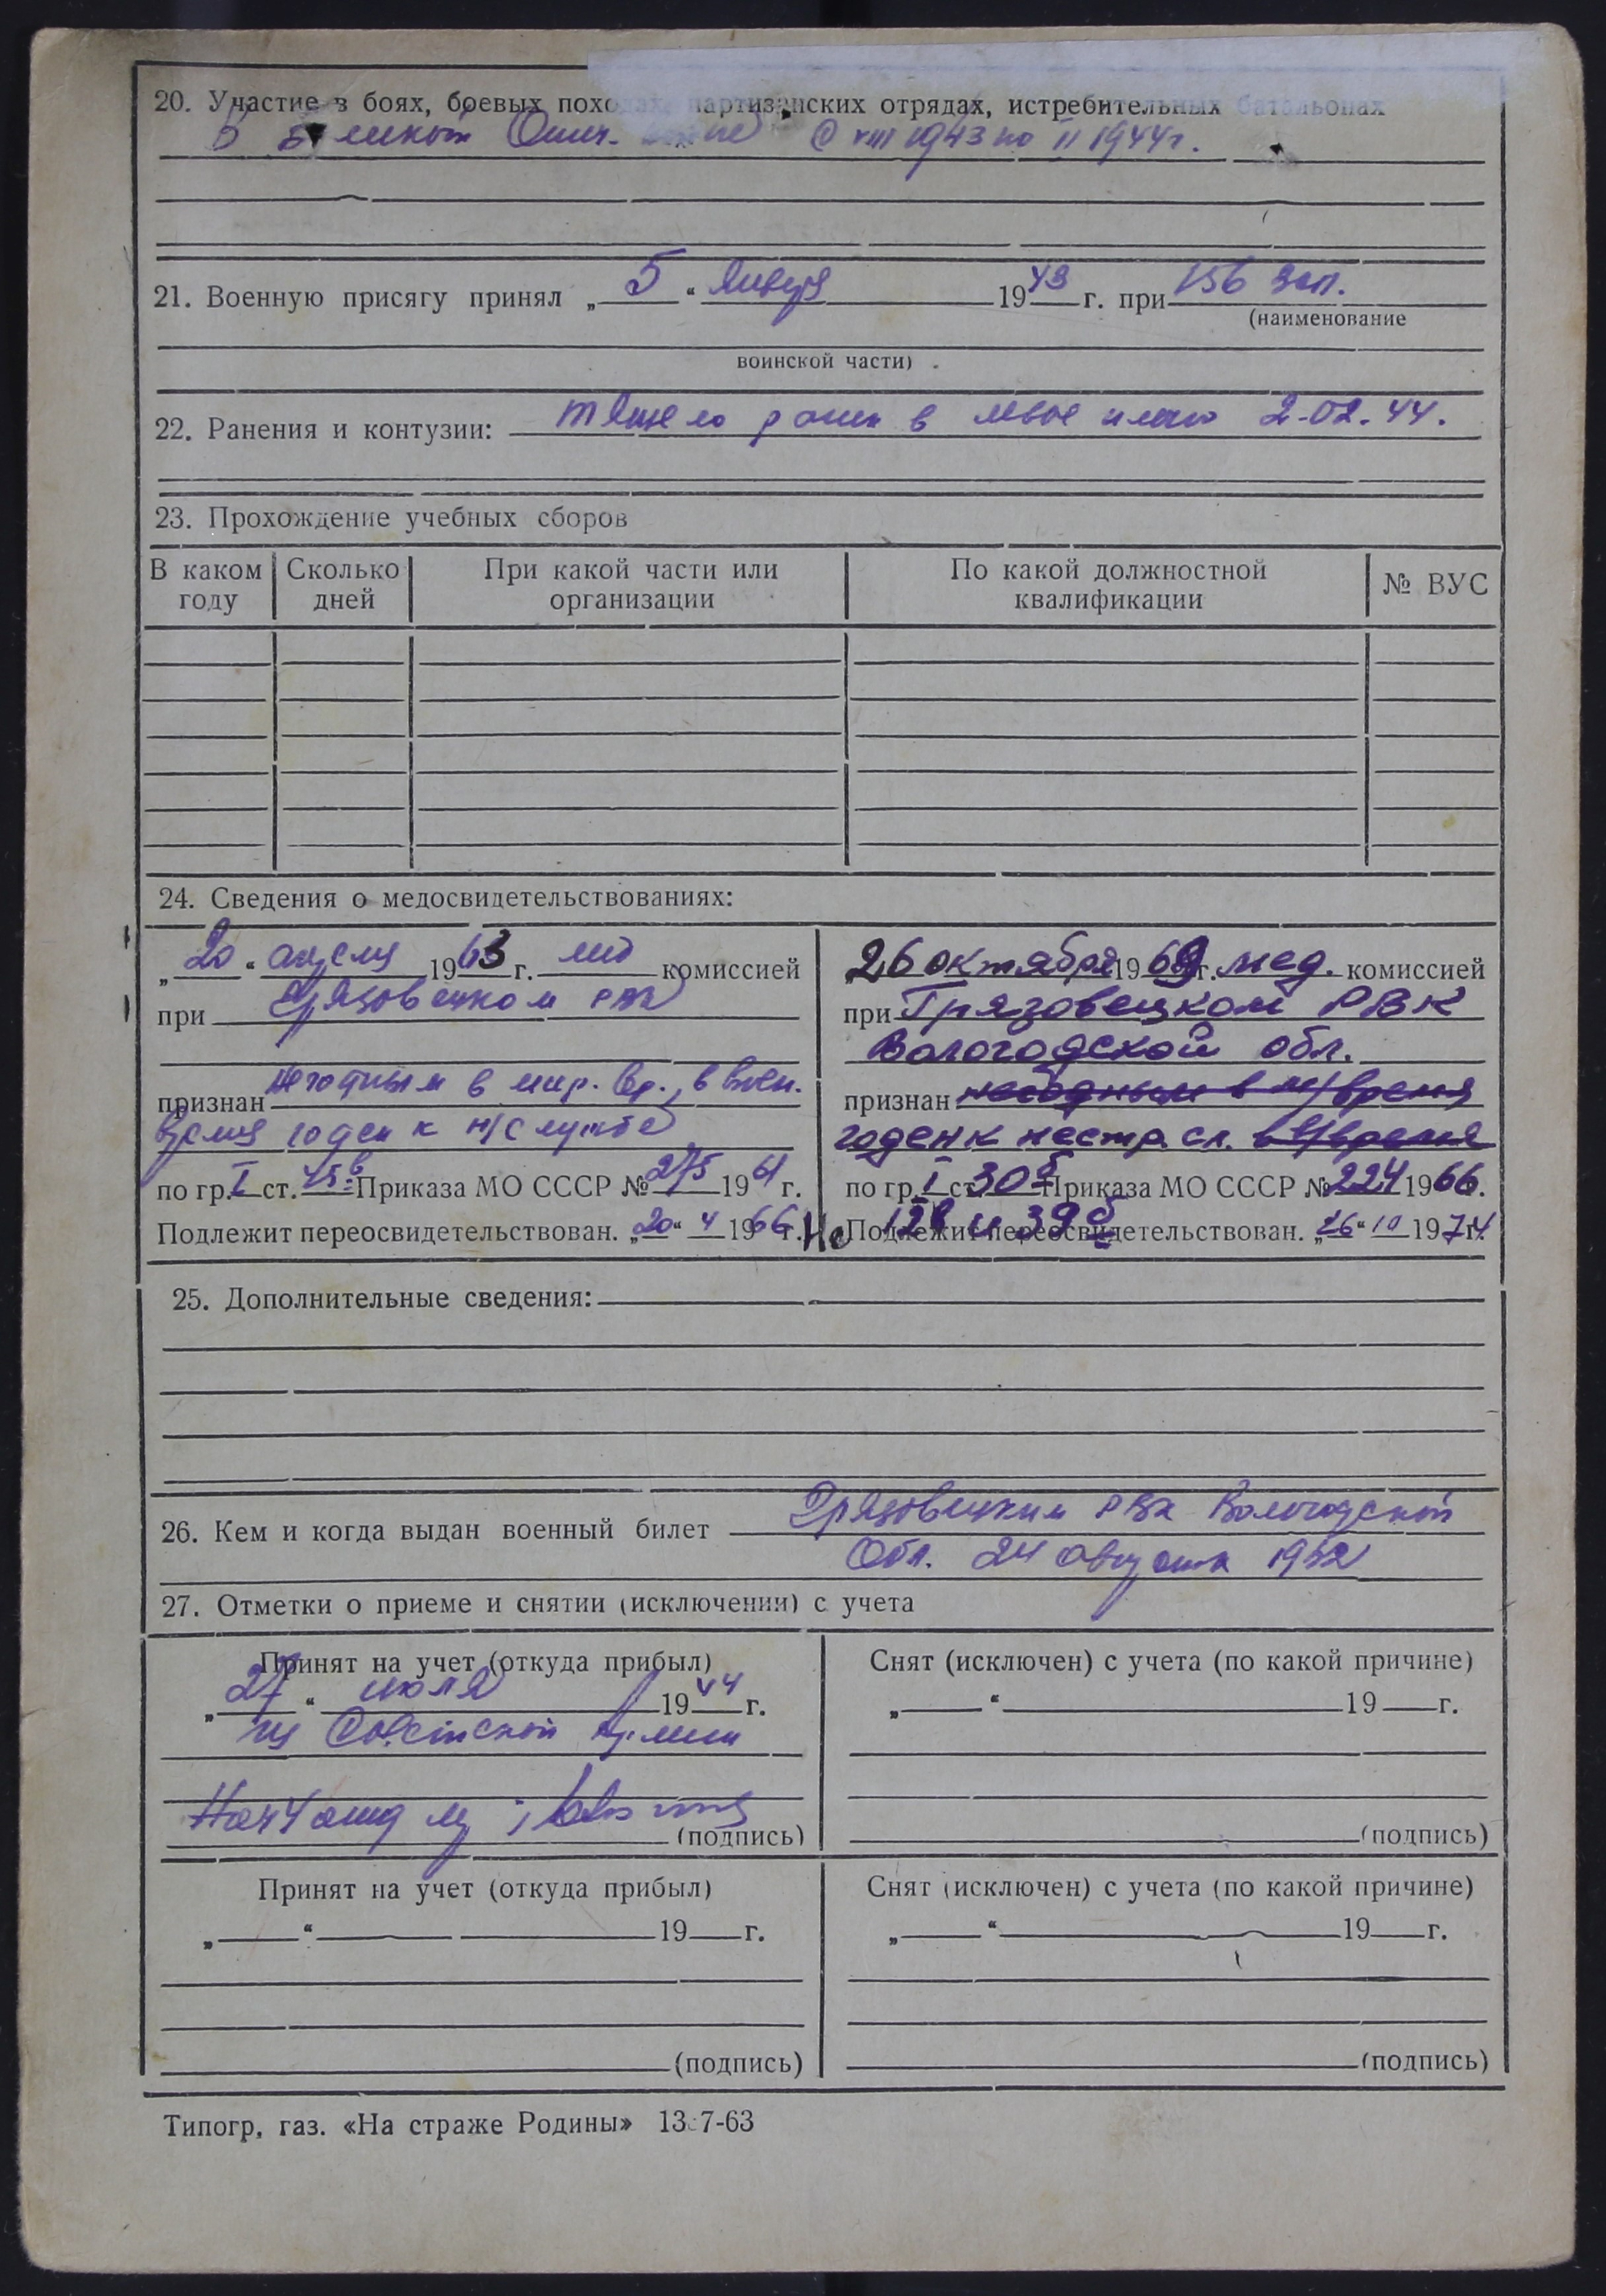 20. Участие в боях, боевых походах, партизанских отрядах, истребительных батальонах
В Великой Отеч. войне с VIII 1943 по II 1944 г.
21. Военную присягу принял „5“ Января 1943 г. при 156 зап.
(наименование
воинской части)
22. Ранения и контузии: тяжело ранен в левое плечо 2-02.44.
23. Прохождение учебных сборов
В каком году | Сколько дней | При какой части или организации | По какой должностной квалификации | № ВУС
24. Сведения о медосвидетельствованиях:
„20“ апреля 1963 г. мед комиссией
при Грязовецком РВК
признан негодным в мир. вр., в воен.
время годен к н/службе
по гр. I ст. 45в Приказа МО СССР № 275 1961 г.
Подлежит переосвидетельствован. „20“ 4 1966 г.
26 октября 1969 г. мед. комиссией
при Грязовецком РВК
Вологодской обл.
признан негодным в м/время
годен к нестр. сл. в в/время
по гр. I ст. 30б Приказа МО СССР № 224 1966 г.
12в и 39б
Не Подлежит переосвидетельствован. „26“ 10 1974 г.
25. Дополнительные сведения:
26. Кем и когда выдан военный билет Грязовецким РВК Вологодской
Обл. 24 августа 1952
27. Отметки о приеме и снятии (исключении) с учета
Принят на учет (откуда прибыл)
„27“ июля 1944 г.
из Советской Армии
(подпись)
Снят (исключен) с учета (по какой причине)
„ “ 19 г.
(подпись)
Принят на учет (откуда прибыл)
„ “ 19 г.
(подпись)
Снят (исключен) с учета (по какой причине)
„ “ 19 г.
(подпись)
Типогр, газ. «На страже Родины» 7-63